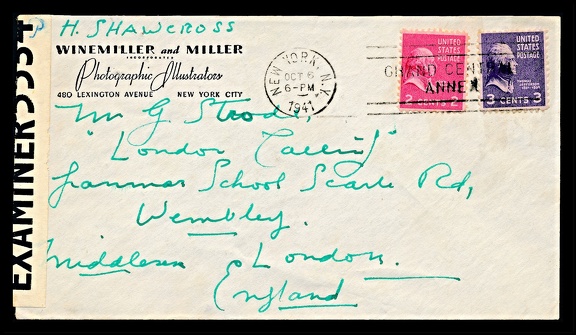 H. SHAWCROSS
WINEMILLER and MILLER
INCORPORATED
Photographic Illustrators
480 LEXINGTON AVENUE NEW YORK CITY
NEW YORK, N.Y.
OCT 6
6-PM
1941
GRAND CENTRAL
ANNEX
UNITED STATES POSTAGE
2 CENTS 2
UNITED STATES POSTAGE
3 CENTS 3
EXAMINER 5334
Mr G Strode,
"London Calling"
Grammar School Scarle Rd,
Wembley.
Middlesex London.
England